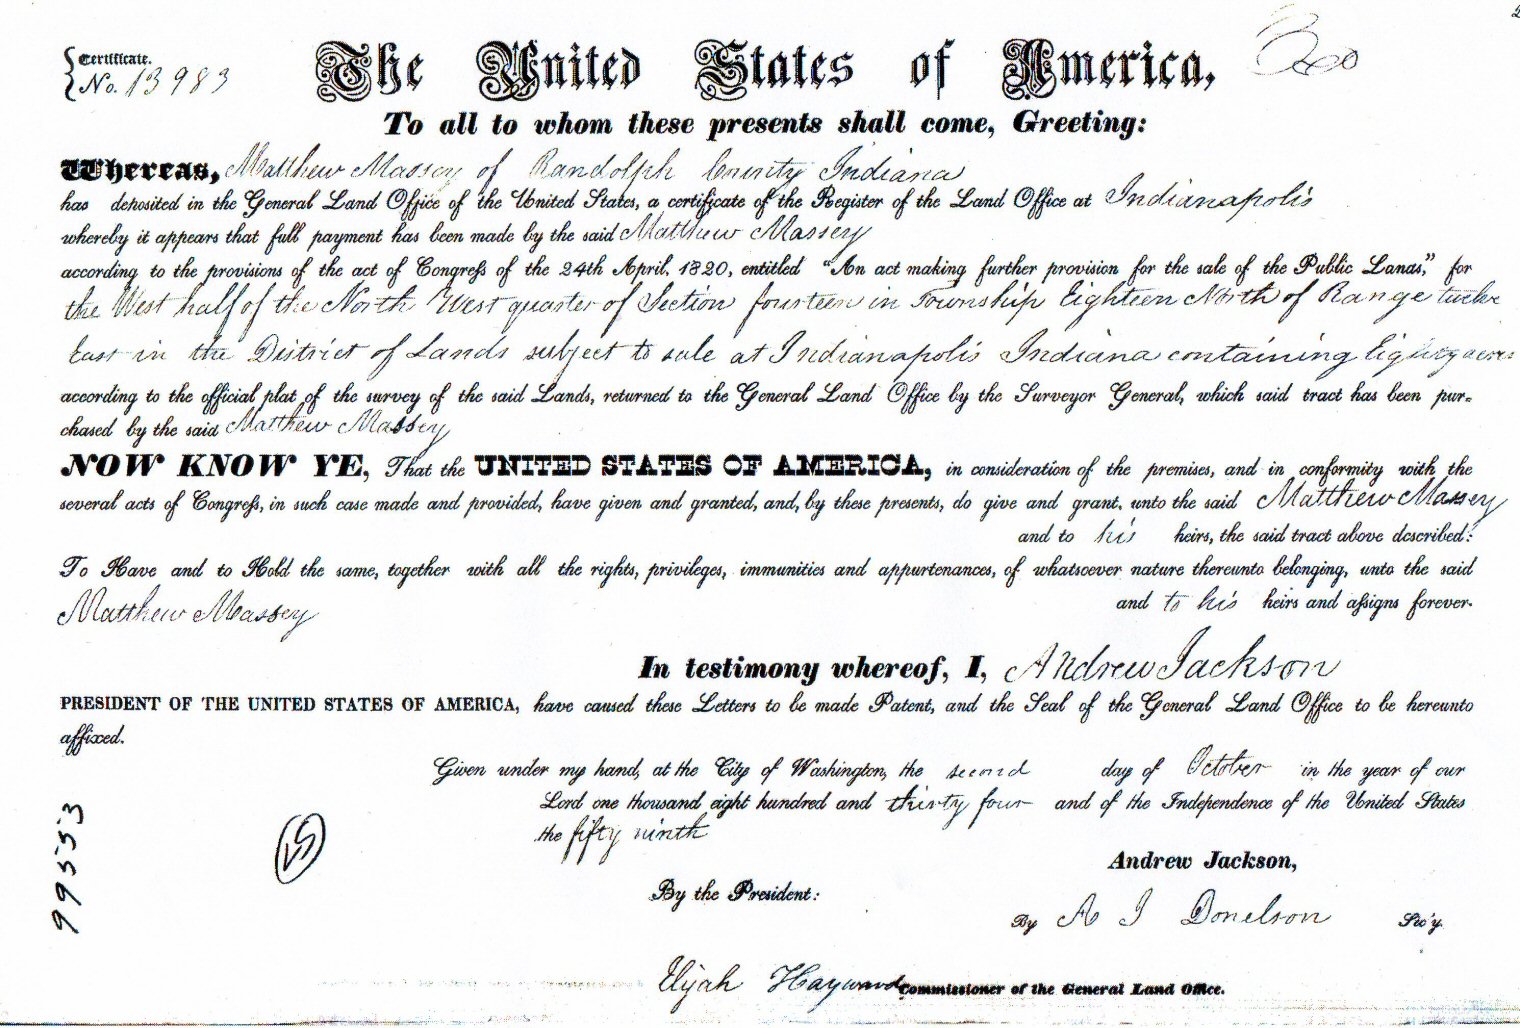 Certificate.
No. 13983
The United States of America,
To all to whom these presents shall come, Greeting:
Whereas, Matthew Massey of Randolph County Indiana
has deposited in the General Land Office of the United States, a certificate of the Register of the Land Office at Indianapolis
whereby it appears that full payment has been made by the said Matthew Massey
according to the provisions of the act of Congress of the 24th April, 1820, entitled "An act making further provision for the sale of the Public Lands," for
the West half of the North West quarter of Section fourteen in Township Eighteen North of Range twelve
East in the District of Lands subject to sale at Indianapolis Indiana containing Eighty acres
according to the official plat of the survey of the said Lands, returned to the General Land Office by the Surveyor General, which said tract has been pur-
chased by the said Matthew Massey
NOW KNOW YE, That the UNITED STATES OF AMERICA, in consideration of the premises, and in conformity with the
several acts of Congress, in such case made and provided, have given and granted, and, by these presents, do give and grant, unto the said Matthew Massey
and to his heirs, the said tract above described:
To Have and to Hold the same, together with all the rights, privileges, immunities and appurtenances, of whatsoever nature thereunto belonging, unto the said
Matthew Massey and to his heirs and assigns forever.
In testimony whereof, I, Andrew Jackson
PRESIDENT OF THE UNITED STATES OF AMERICA, have caused these Letters to be made Patent, and the Seal of the General Land Office to be hereunto
affixed.
Given under my hand, at the City of Washington, the second day of October in the year of our
Lord one thousand eight hundred and thirty four and of the Independence of the United States
the fifty ninth
Andrew Jackson,
By the President:
By A J Donelson Sec'y.
Elijah Hayward Commissioner of the General Land Office.
99553